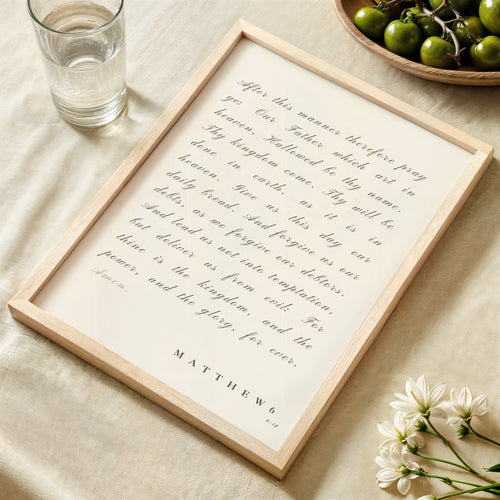 After this manner therefore pray
ye: Our Father which art in
heaven, Hallowed be thy name.
Thy kingdom come. Thy will be
done in earth, as it is in
heaven. Give us this day our
daily bread. And forgive us our
debts, as we forgive our debtors.
And lead us not into temptation,
but deliver us from evil: For
thine is the kingdom, and the
power, and the glory, for ever.
Amen.
MATTHEW 6